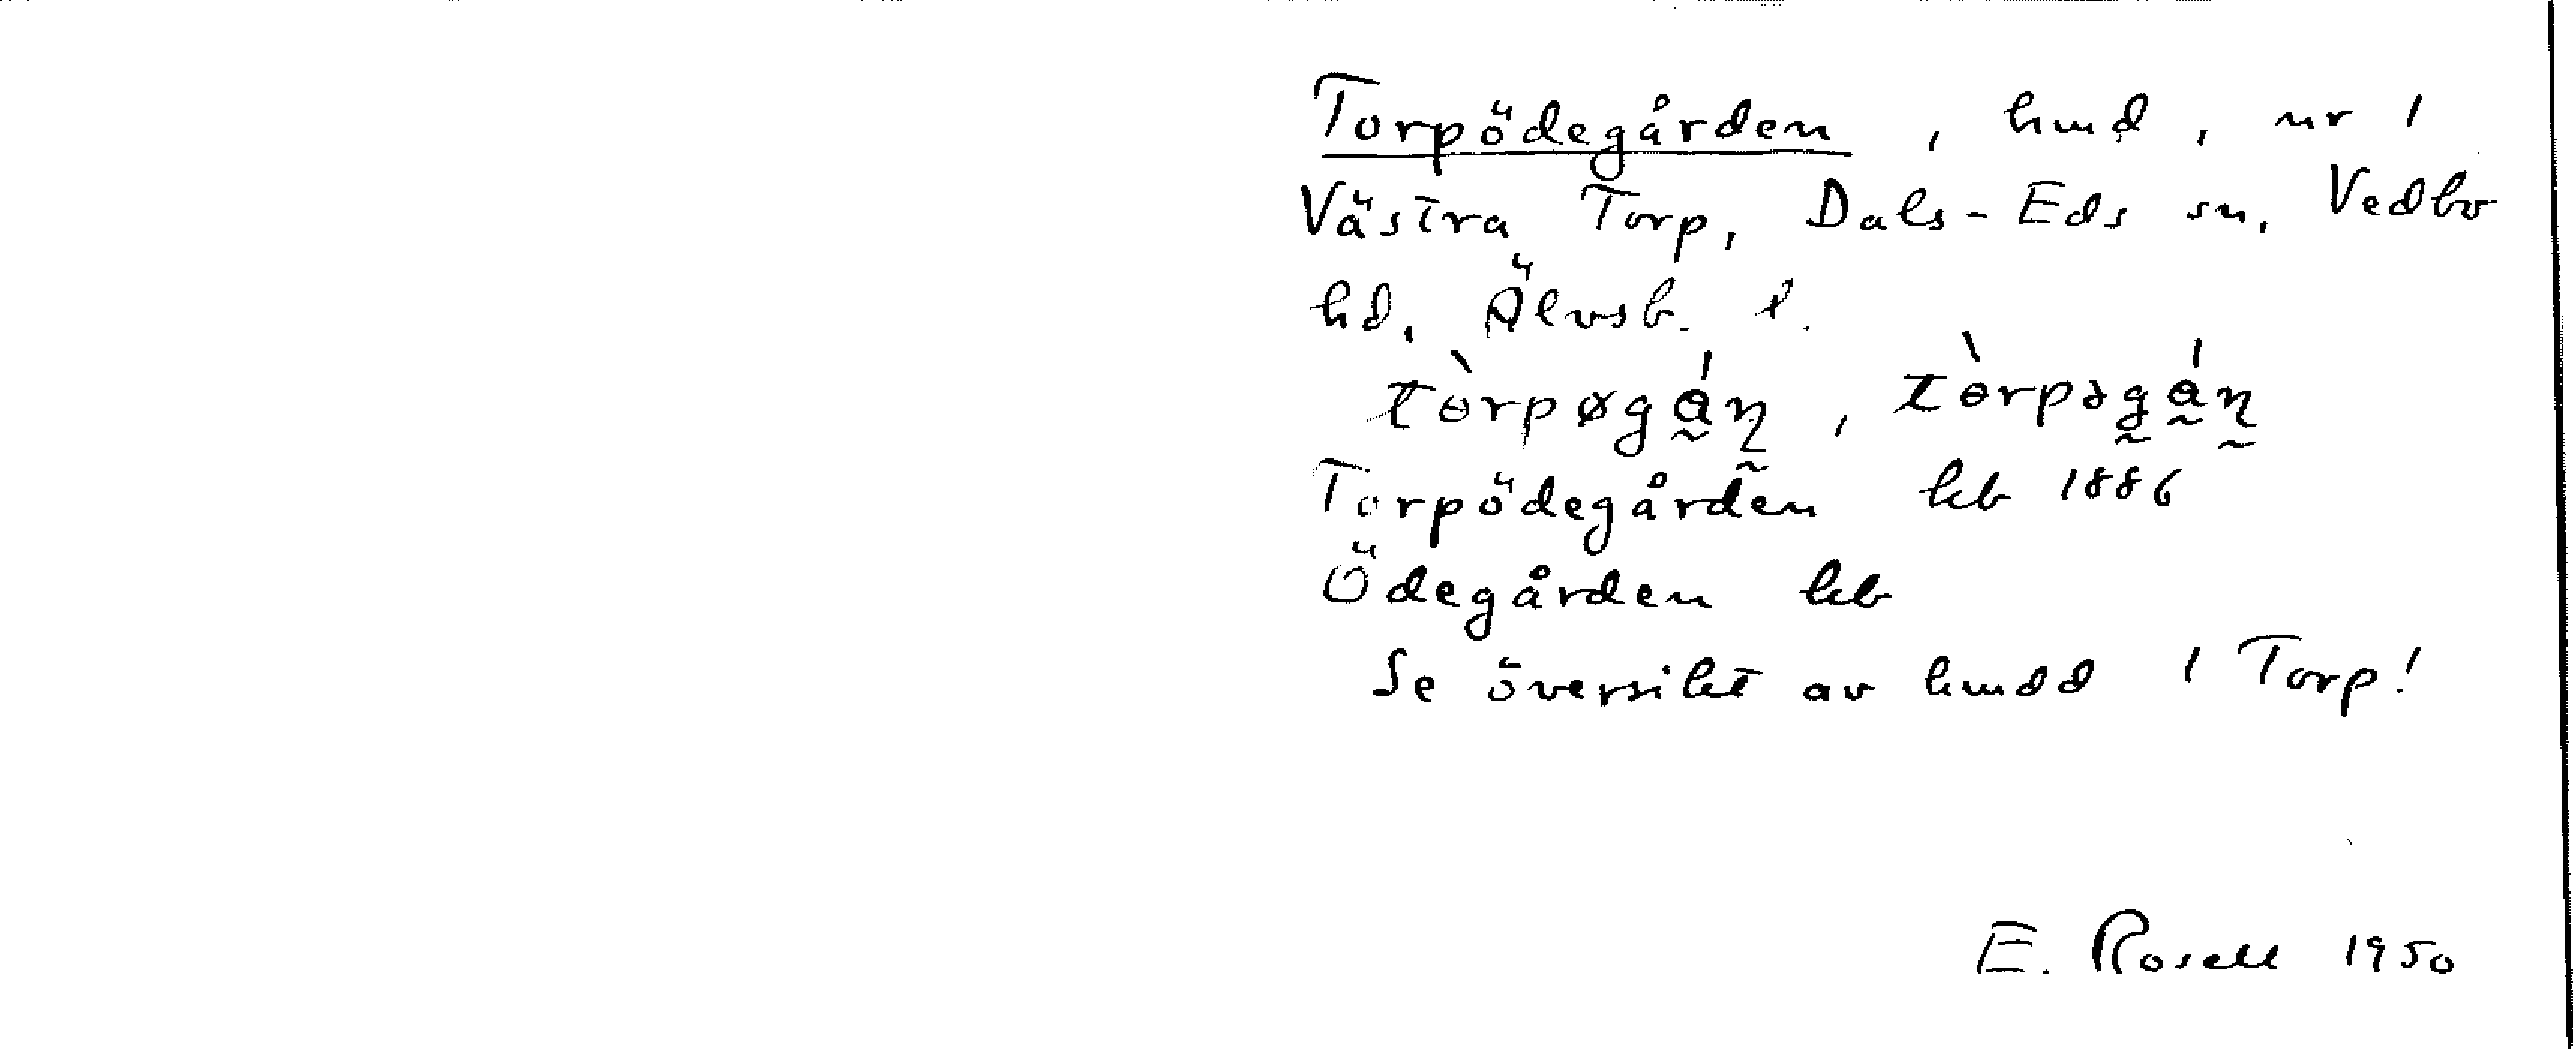 Torpödegården, hmd, nr 1
Västra Torp, Dals-Eds sn, Vedbo
hd, Älvsb. l.
tɵ̀rpøgá̰ɳ̰, tɵ̀rpəg̰á̰ɳ̰
Torpödegården kb 1886
Ödegården kb
Se översikt av hmdd 1 Torp!
E. Rosell 1950